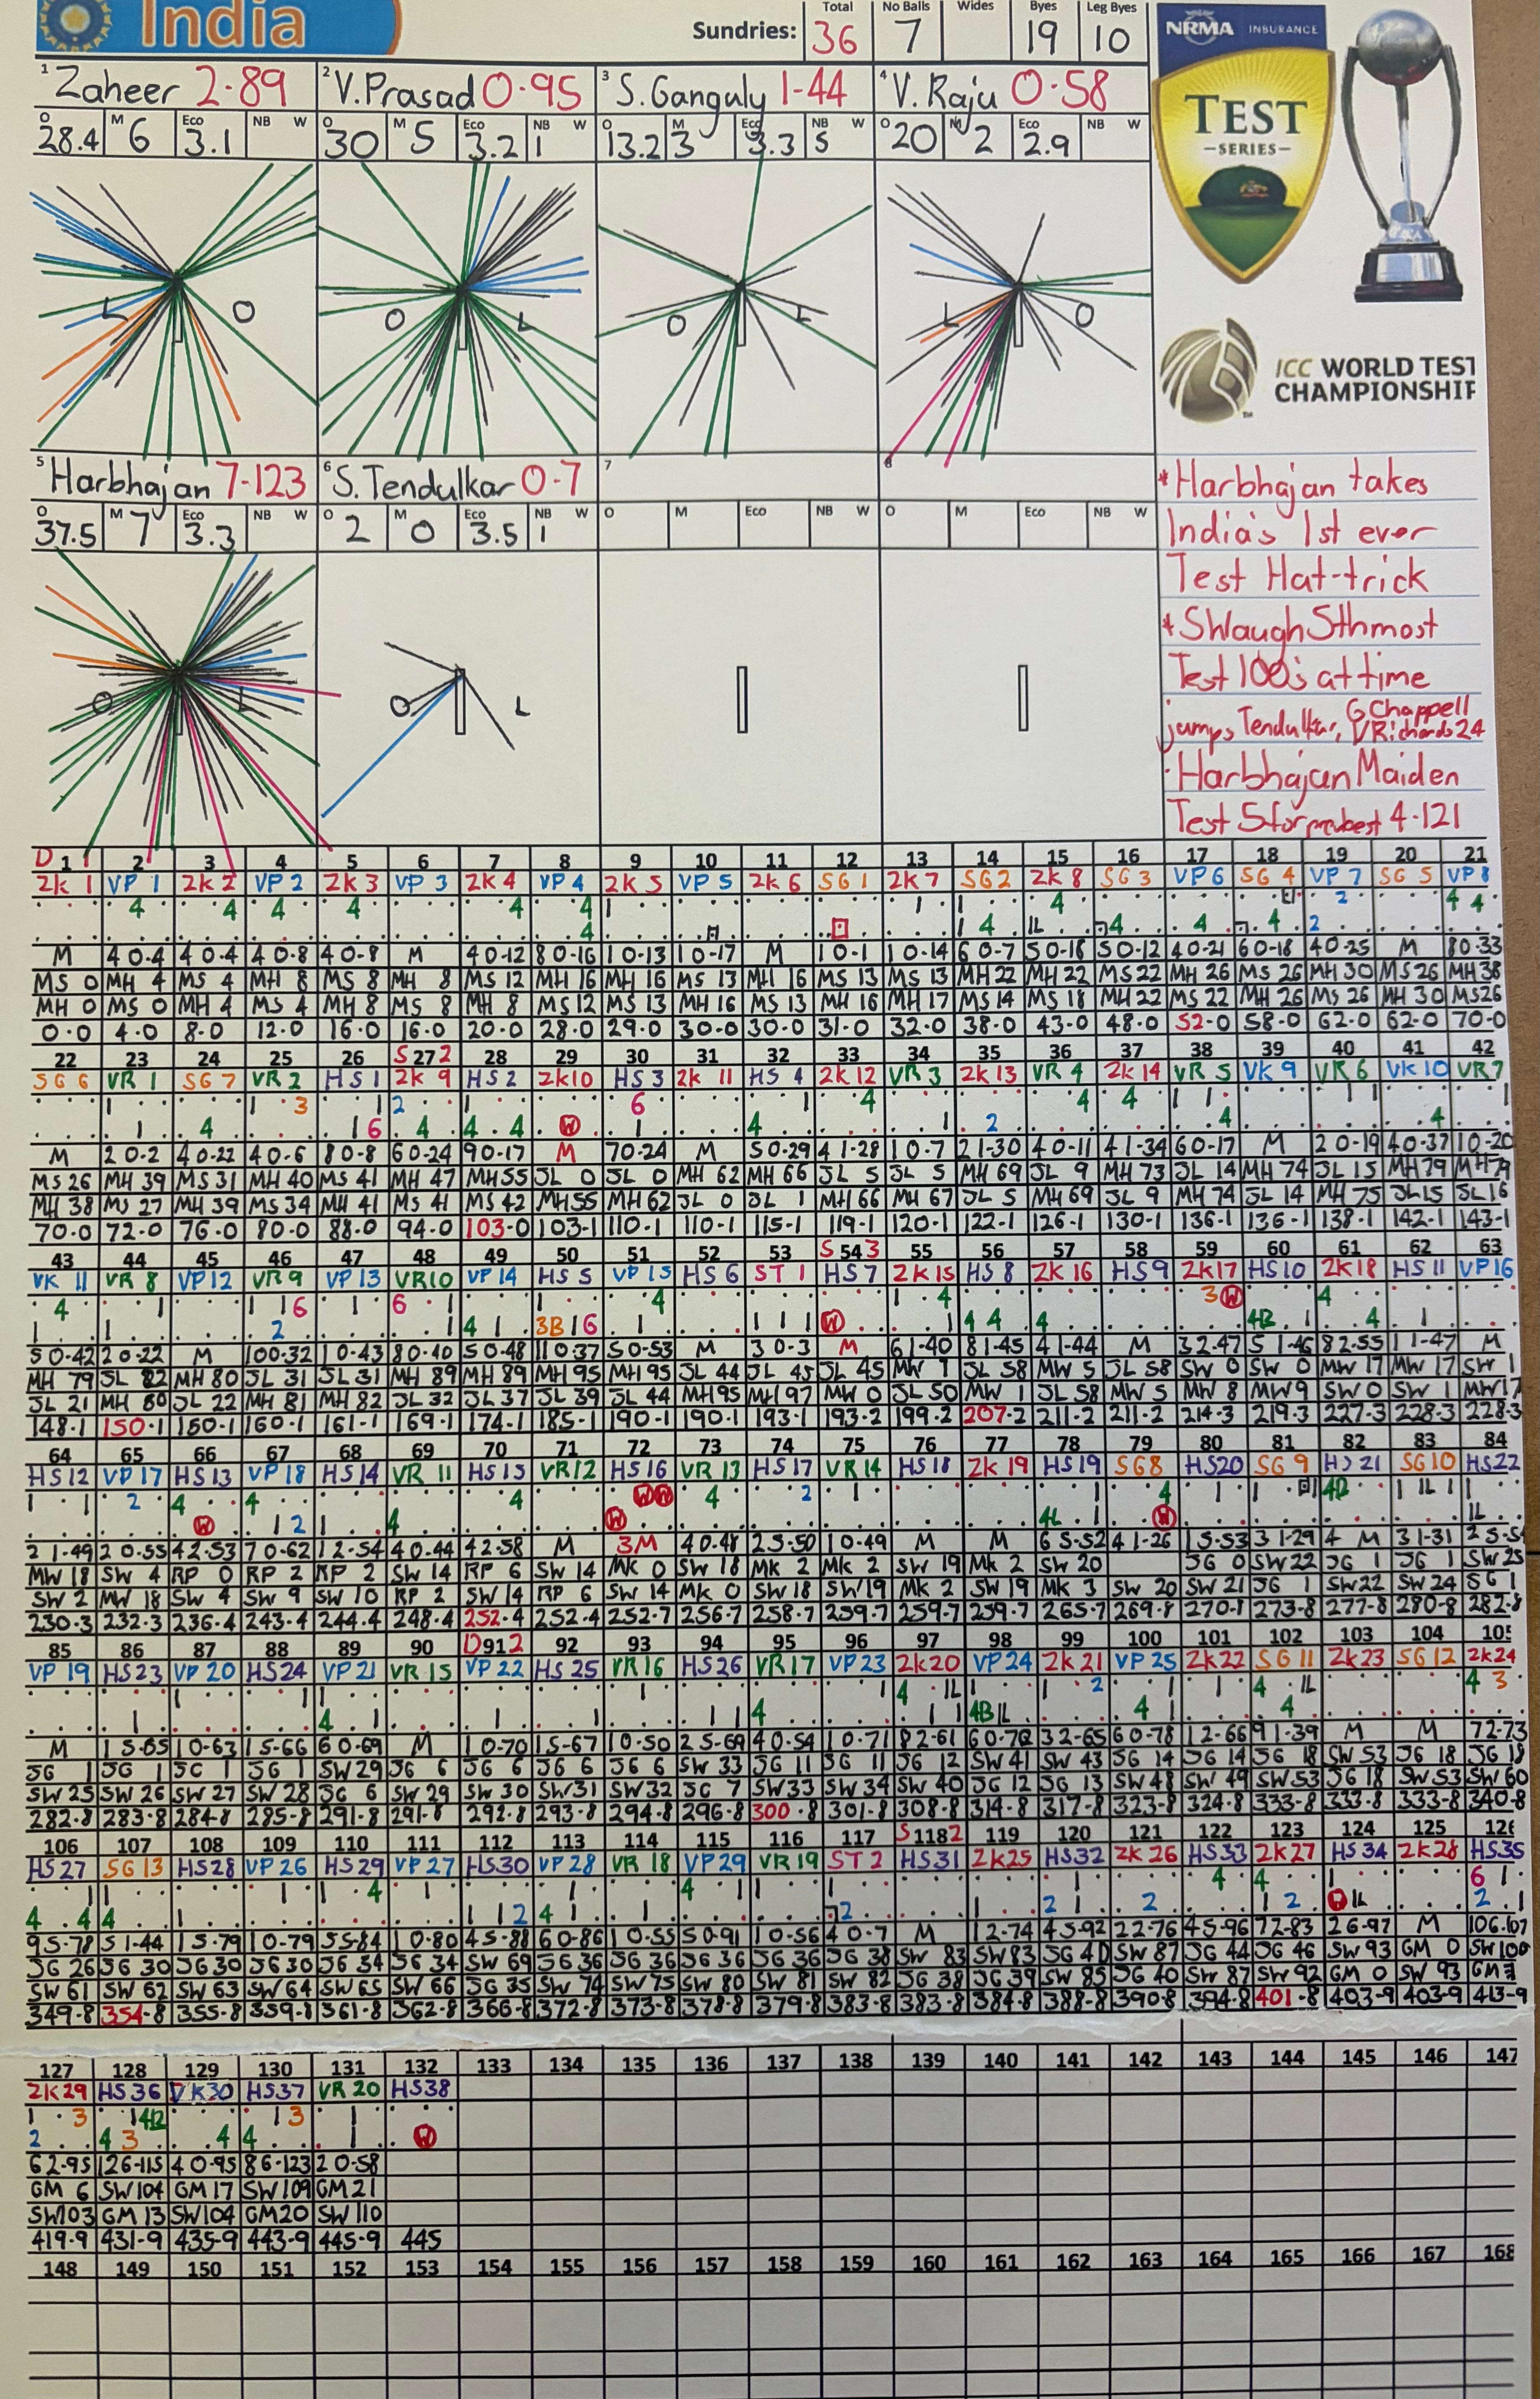 India
Sundries:
Total No Balls Wides Byes Leg Byes
36 7 19 10
NRMA INSURANCE
TEST
SERIES
ICC WORLD TEST
CHAMPIONSHIP
1 Zaheer 2-89
O 28.4 M 6 Eco 3.1 NB W
2 V.Prasad 0-95
O 30 M 5 Eco 3.2 NB 1 W
3 S.Ganguly 1-44
O 13.2 M 3 Eco 3.3 NB 5 W
4 V.Raju 0-58
O 20 M 2 Eco 2.9 NB W
L O
O L
O L
L O
5 Harbhajan 7-123
O 37.5 M 7 Eco 3.3 NB W
6 S.Tendulkar 0-7
O 2 M 0 Eco 3.5 NB 1 W
7
O M Eco NB W
8
O M Eco NB W
O L
O L
*Harbhajan takes
India's 1st ever
Test Hat-trick
*SWaugh 5th most
Test 100s at time
jumps Tendulkar, G Chappell
VRichards 24
Harbhajan Maiden
Test 5for prevbest 4-121
D 1 1 2 3 4 5 6 7 8 9 10 11 12 13 14 15 16 17 18 19 20 21
ZK 1 VP 1 ZK 2 VP 2 ZK 3 VP 3 ZK 4 VP 4 ZK 5 VP 5 ZK 6 SG 1 ZK 7 SG 2 ZK 8 SG 3 VP 6 SG 4 VP 7 SG 5 VP 8
M 4 0-4 4 0-4 4 0-8 4 0-8 M 4 0-12 8 0-16 1 0-13 1 0-17 M 1 0-1 1 0-14 6 0-7 5 0-18 5 0-12 4 0-21 6 0-18 4 0-25 M 8 0-33
MS 0 MH 4 MS 4 MH 8 MS 8 MH 8 MS 12 MH 16 MH 16 MS 13 MH 16 MS 13 MS 13 MH 22 MH 22 MS 22 MH 26 MS 26 MH 30 MS 26 MH 38
MH 0 MS 0 MH 4 MS 4 MH 8 MS 8 MH 8 MS 12 MS 13 MH 16 MS 13 MH 16 MH 17 MS 14 MS 18 MH 22 MS 22 MH 26 MS 26 MH 30 MS 26
0-0 4-0 8-0 12-0 16-0 16-0 20-0 28-0 29-0 30-0 30-0 31-0 32-0 38-0 43-0 48-0 52-0 58-0 62-0 62-0 70-0
22 23 24 25 26 S 27 2 28 29 30 31 32 33 34 35 36 37 38 39 40 41 42
SG 6 VR 1 SG 7 VR 2 HS 1 ZK 9 HS 2 ZK 10 HS 3 ZK 11 HS 4 ZK 12 VR 3 ZK 13 VR 4 ZK 14 VR 5 VK 9 VR 6 VK 10 VR 7
M 2 0-2 4 0-22 4 0-6 8 0-8 6 0-24 9 0-17 M 7 0-24 M 5 0-29 4 1-28 1 0-7 2 1-30 4 0-11 4 1-34 6 0-17 M 2 0-19 4 0-37 1 0-20
MS 26 MH 39 MS 31 MH 40 MS 41 MH 47 MH 55 JL 0 JL 0 MH 62 MH 66 JL 5 JL 5 MH 69 JL 9 MH 73 JL 14 MH 74 JL 15 MH 79 MH 79
MH 38 MS 27 MH 39 MS 34 MH 41 MS 41 MS 42 MH 55 MH 62 JL 0 JL 1 MH 66 MH 67 JL 5 MH 69 JL 9 MH 74 JL 14 MH 75 JL 15 JL 16
70-0 72-0 76-0 80-0 88-0 94-0 103-0 103-1 110-1 110-1 115-1 119-1 120-1 122-1 126-1 130-1 136-1 136-1 138-1 142-1 143-1
43 44 45 46 47 48 49 50 51 52 53 S 54 3 55 56 57 58 59 60 61 62 63
VK 11 VR 8 VP 12 VR 9 VP 13 VR 10 VP 14 HS 5 VP 15 HS 6 ST 1 HS 7 ZK 15 HS 8 ZK 16 HS 9 ZK 17 HS 10 ZK 18 HS 11 VP 16
5 0-42 2 0-22 M 10 0-32 1 0-43 8 0-40 5 0-48 11 0-37 5 0-53 M 3 0-3 M 6 1-40 8 1-45 4 1-44 M 3 2-47 5 1-46 8 2-55 1 1-47 M
MH 79 JL 22 MH 80 JL 31 JL 31 MH 89 MH 89 MH 95 MH 95 JL 44 JL 45 JL 45 MW 1 JL 58 MW 5 JL 58 SW 0 SW 0 MW 17 MW 17 SW 1
JL 21 MH 80 JL 22 MH 81 MH 82 JL 32 JL 37 JL 39 JL 44 MH 95 MH 97 MW 0 JL 50 MW 1 JL 58 MW 5 MW 8 MW 9 SW 0 SW 1 MW 17
148-1 150-1 150-1 160-1 161-1 169-1 174-1 185-1 190-1 190-1 193-1 193-2 199-2 207-2 211-2 211-2 214-3 219-3 227-3 228-3 228-3
64 65 66 67 68 69 70 71 72 73 74 75 76 77 78 79 80 81 82 83 84
HS 12 VP 17 HS 13 VP 18 HS 14 VR 11 HS 15 VR 12 HS 16 VR 13 HS 17 VR 14 HS 18 ZK 19 HS 19 SG 8 HS 20 SG 9 HS 21 SG 10 HS 22
2 1-49 2 0-55 4 2-53 7 0-62 1 2-54 4 0-44 4 2-58 M 3M 4 0-48 2 5-50 1 0-49 M M 6 5-52 4 1-26 1 5-53 3 1-29 4 M 3 1-31
MW 18 SW 4 RP 0 RP 2 RP 2 SW 14 RP 6 SW 14 MK 0 SW 18 MK 2 MK 2 SW 19 MK 2 SW 20 JG 0 SW 22 JG 1 JG 1 SW 25
SW 2 MW 18 SW 4 SW 9 SW 10 RP 2 SW 14 RP 6 SW 14 MK 0 SW 18 SW 19 MK 2 SW 19 MK 3 SW 20 SW 21 JG 1 SW 22 SW 24 JG 1
230-3 232-3 236-4 243-4 244-4 248-4 252-4 252-4 252-7 256-7 258-7 259-7 259-7 259-7 265-7 269-8 270-8 273-8 277-8 280-8 282-8
85 86 87 88 89 90 D 91 2 92 93 94 95 96 97 98 99 100 101 102 103 104 105
VP 19 HS 23 VP 20 HS 24 VP 21 VR 15 VP 22 HS 25 VR 16 HS 26 VR 17 VP 23 ZK 20 VP 24 ZK 21 VP 25 ZK 22 SG 11 ZK 23 SG 12 ZK 24
M 1 5-65 1 0-63 1 5-66 6 0-69 M 1 0-70 1 5-67 1 0-50 2 5-69 4 0-54 1 0-71 8 2-61 6 0-72 3 2-65 6 0-78 1 2-66 9 1-39 M M 7 2-73
JG 1 JG 1 JG 1 JG 1 SW 29 JG 6 JG 6 JG 6 JG 6 SW 33 JG 11 JG 11 JG 12 SW 41 SW 43 JG 14 JG 14 JG 18 SW 53 JG 18 JG 18
SW 25 SW 26 SW 27 SW 28 JG 6 SW 29 SW 30 SW 31 SW 32 JG 7 SW 33 SW 34 SW 40 JG 12 JG 13 SW 48 SW 49 SW 53 JG 18 SW 53 SW 60
282-8 283-8 284-8 285-8 291-8 291-8 292-8 293-8 294-8 296-8 300-8 301-8 308-8 314-8 317-8 323-8 324-8 333-8 333-8 333-8 340-8
106 107 108 109 110 111 112 113 114 115 116 117 S 118 2 119 120 121 122 123 124 125 126
HS 27 SG 13 HS 28 VP 26 HS 29 VP 27 HS 30 VP 28 VR 18 VP 29 VR 19 ST 2 HS 31 ZK 25 HS 32 ZK 26 HS 33 ZK 27 HS 34 ZK 28 HS 35
9 5-78 5 1-44 1 5-79 1 0-79 5 5-84 1 0-80 4 5-88 6 0-86 1 0-55 5 0-91 1 0-56 4 0-7 M 1 2-74 4 5-92 2 2-76 4 5-96 7 2-83 2 6-97 M 10 6-107
JG 26 JG 30 JG 30 JG 30 JG 34 JG 34 SW 69 JG 36 JG 36 JG 36 JG 36 JG 38 SW 83 SW 83 JG 40 SW 87 JG 44 JG 46 SW 93 GM 0 SW 100
SW 61 SW 62 SW 63 SW 64 SW 65 SW 66 JG 35 SW 74 SW 75 SW 80 SW 81 SW 82 JG 38 JG 39 SW 85 JG 40 SW 87 SW 92 GM 0 SW 93
349-8 354-8 355-8 359-8 361-8 362-8 366-8 372-8 373-8 378-8 379-8 383-8 383-8 384-8 388-8 390-8 394-8 401-8 403-9 403-9 413-9
127 128 129 130 131 132 133 134 135 136 137 138 139 140 141 142 143 144 145 146 147
ZK 29 HS 36 VK 30 HS 37 VR 20 HS 38
6 2-95 12 6-115 4 0-95 8 6-123 2 0-58
GM 6 SW 104 GM 17 SW 109 GM 21
SW 103 GM 13 SW 104 GM 20 SW 110
419-9 431-9 435-9 443-9 445-9 445
148 149 150 151 152 153 154 155 156 157 158 159 160 161 162 163 164 165 166 167 168